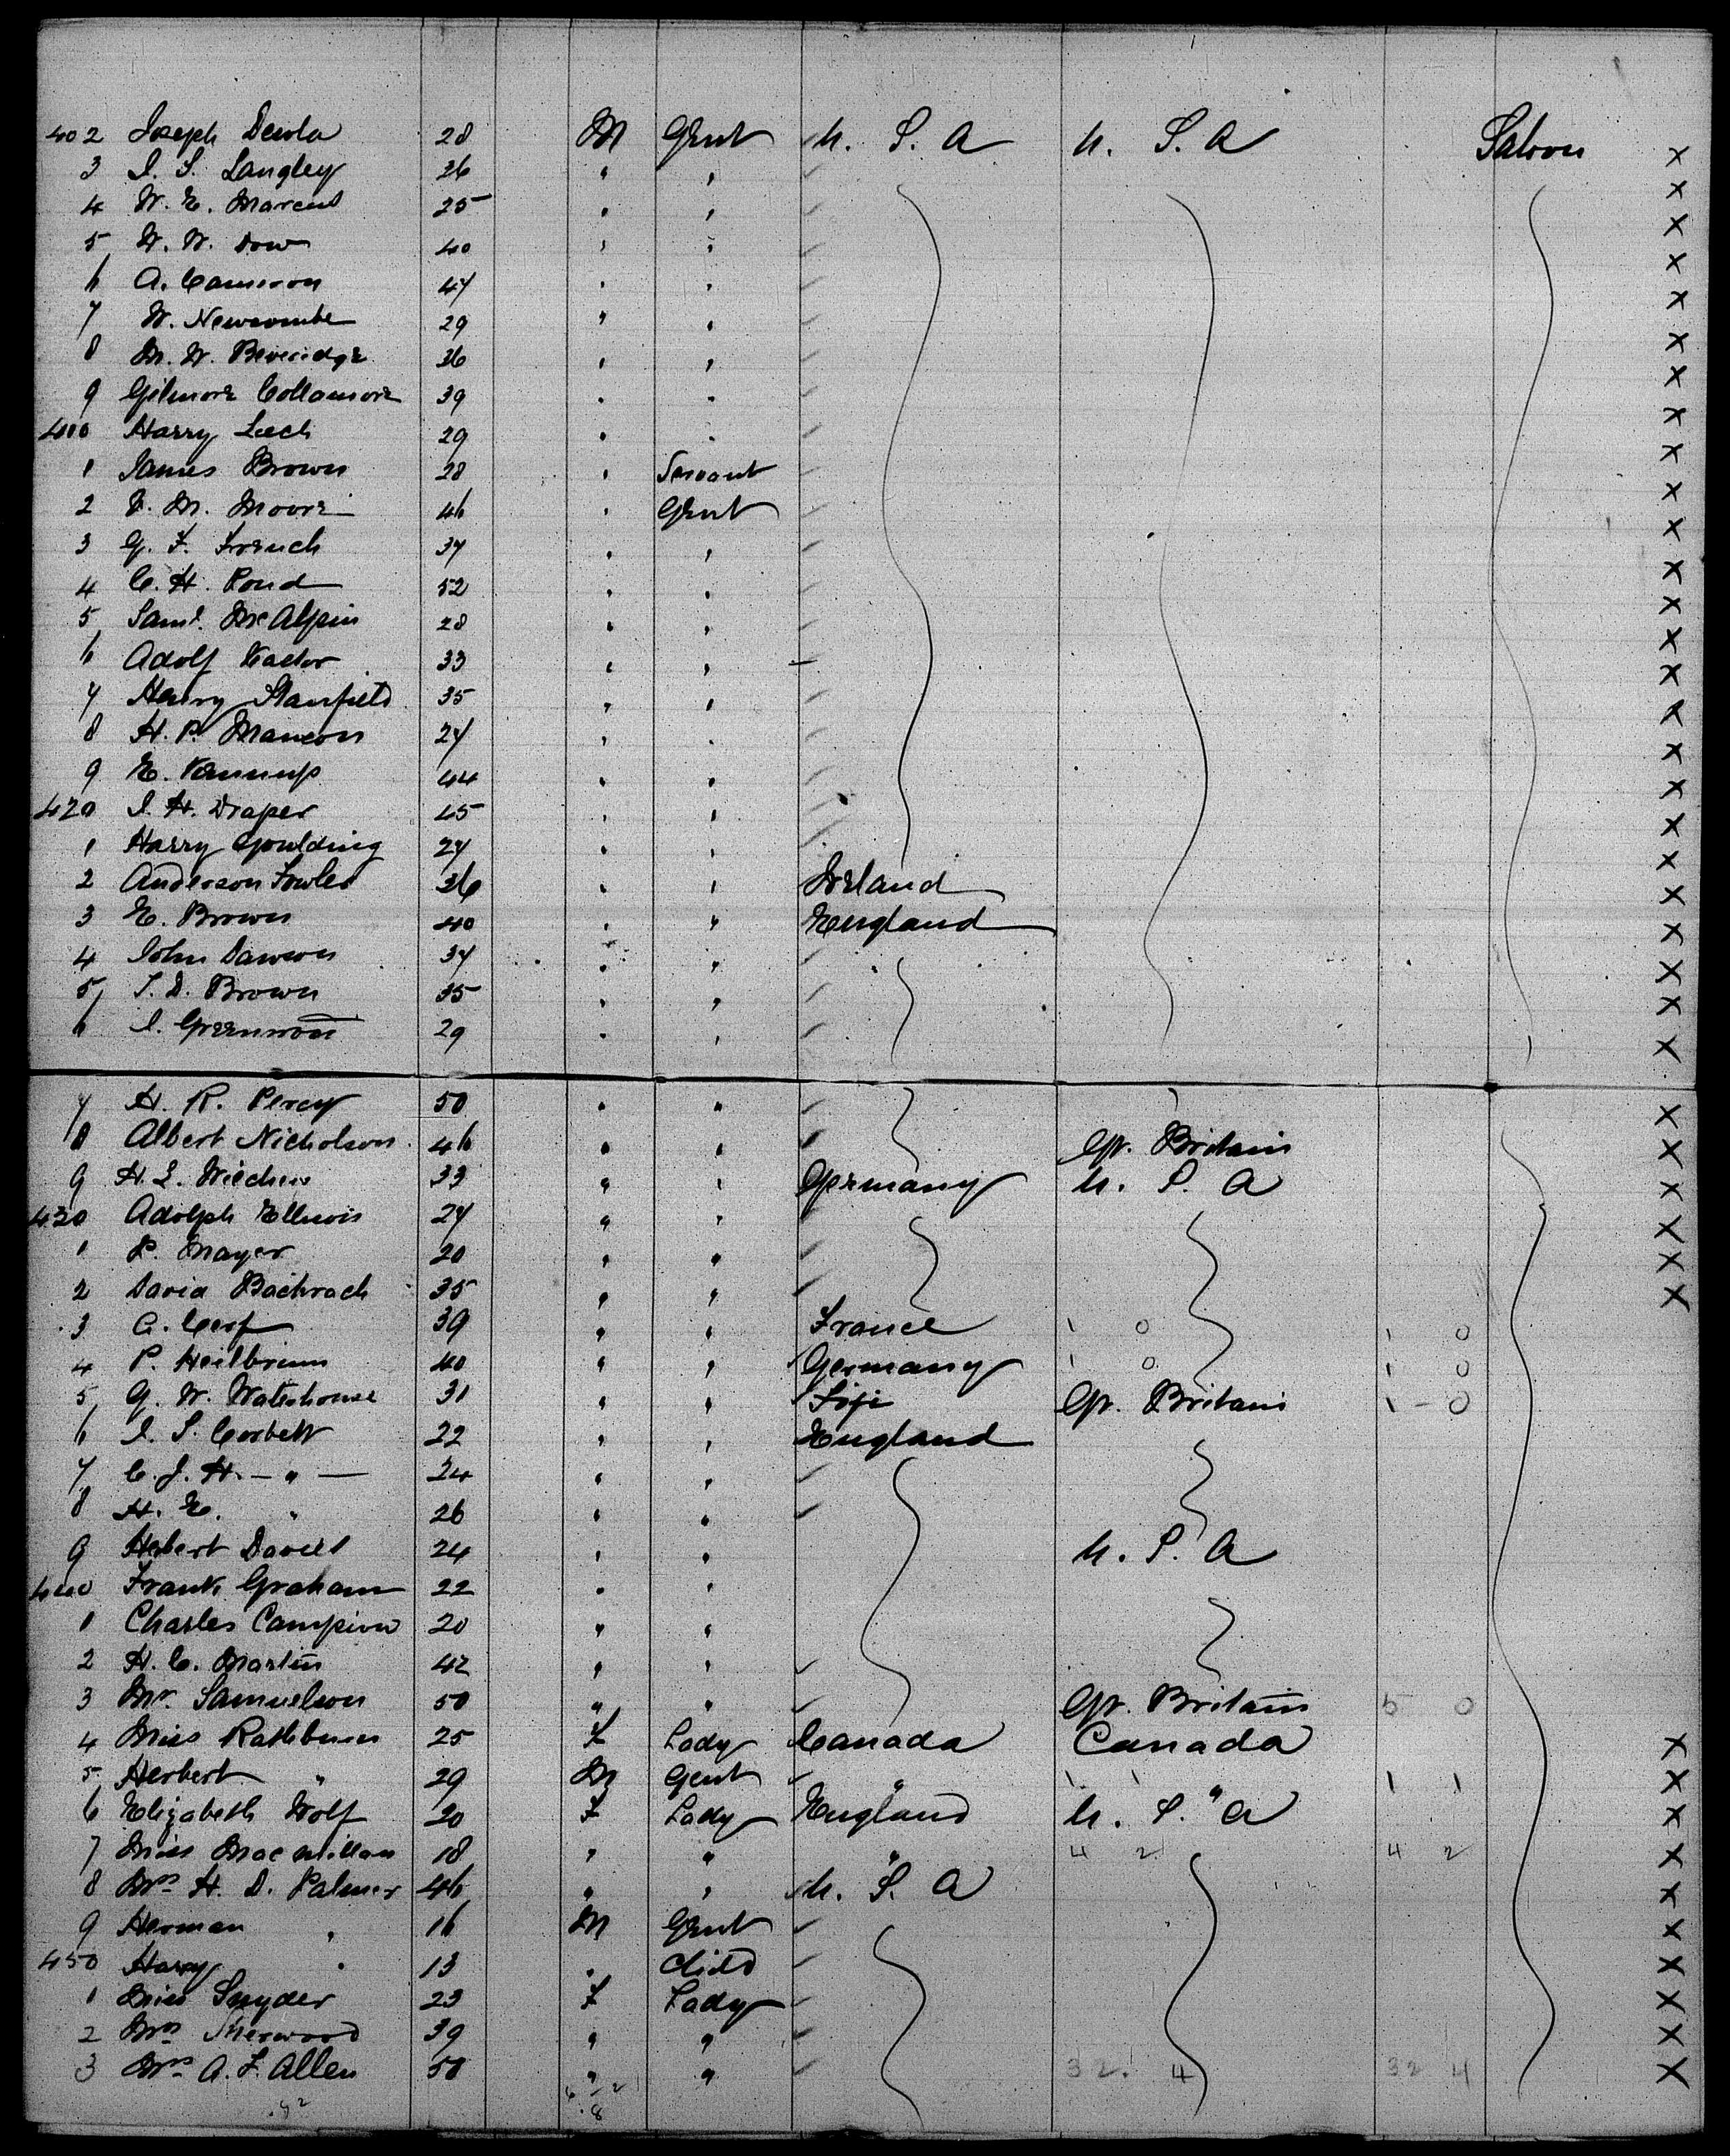 402 Joseph Devola 28 M Gent U. S. A U. S. A Saloon X
3 J. S. Langley 26 " " X
4 W. E. Marcus 25 " " X
5 W. W. Dow 40 " " X
6 A. Cameron 47 " " X
7 W. Newcombe 29 " " X
8 M. W. Beveridge 36 " " X
9 Gilmore Collamore 39 " " X
410 Harry Leech 29 " " X
1 James Brown 28 " Servant X
2 F. M. Moore 46 " Gent X
3 G. F. French 37 " " X
4 C. H. Pond 52 " " X
5 Saml. McAlpin 28 " " X
6 Adolf 33 " " X
7 Henry Stanfield 35 " " X
8 H. P. 27 " " X
9 E. 44 " " X
420 J. H. Draper 45 " " X
1 Harry Goulding 27 " " X
2 Anderson Fowler 36 " " Ireland X
3 E. Brown 40 " " England X
4 John Dawson 37 " " X
5 S. D. Brown 35 " " X
6 J. Greenwood 29 " " X
7 H. R. Percy 50 " " X
8 Albert Nicholson 46 " " Gr. Britain X
9 H. L. 33 " " Germany U. S. A X
430 Adolph 27 " " X
1 P. Mayer 20 " " X
2 David Bachrach 35 " " X
3 A. Cerf 39 " " France 1 0 1 0
4 P. Heilbrunn 40 " " Germany 1 0 1 0
5 G. W. Waterhouse 31 " " Fiji Gr. Britain 1 - 0
6 J. S. Corbett 22 " " England
7 C. J. H. — " — 24 " "
8 H. E. " 26 " "
9 Herbert Davies 24 " " U. S. A
440 Frank Graham 22 " "
1 Charles Campion 20 " "
2 H. C. Martin 42 " "
3 Mr. Samuelson 50 " " Gr. Britain 5 0
4 Miss Rathbun 25 F Lady Canada Canada X
5 Herbert " 29 M Gent " " 1 1 X
6 Elizabeth Wolf 20 F Lady England U. S. A X
7 Miss MacMillan 18 " " " 4 2 4 2 X
8 Mrs H. D. Palmer 46 " " U. S. A X
9 Herman " 16 M Gent X
450 Harry " 13 " Child X
1 Miss Snyder 23 F Lady X
2 Mrs Sherwood 39 " " X
3 Mrs A. F. Allen 50 " " 32. 4 32 4 X